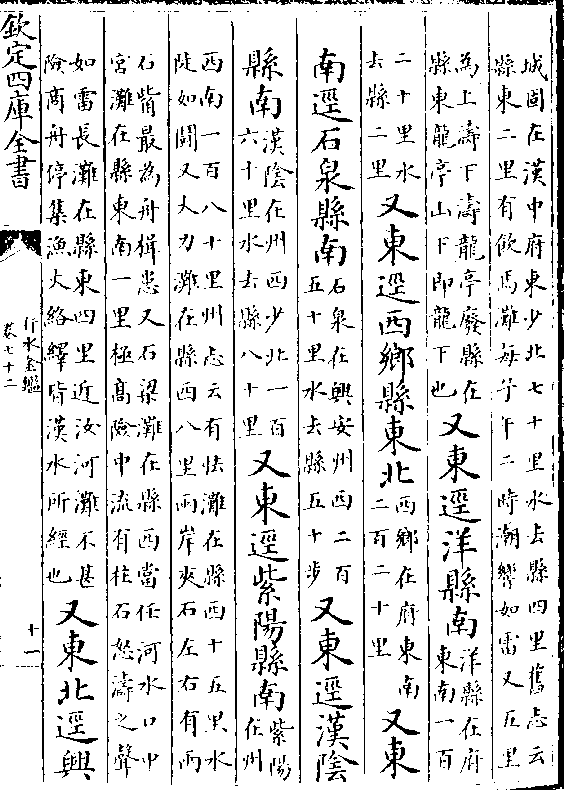 城固在漢中府東少北七十里水去縣四里舊志云
縣東二里有飲馬灘每子午二時潮響如雷又五里
為上濤下濤龍亭廢縣在
縣東龍亭山下即龍下也
又東逕洋縣南
洋縣在府
東南一百
二十里水
去縣二里
又東逕西鄉縣東北
西鄉在府東南
二百二十里
又東
南逕石泉縣南
石泉在興安州西二百
五十里水去縣五十步
又東逕漢陰
縣南
漢陰在州西少北一百
六十里水去縣八十里
又東逕紫陽縣南
紫陽
在州
西南一百八十里州志云有怯灘在縣西十五里水
陡如鬭又大力灘在縣西八里兩岸夾石左右有兩
石觜最為舟楫患又石梁灘在縣西當任河水口中
宮灘在縣東南一里極高險中流有柱石怒濤之聲
如雷長灘在縣東四里近汝河灘不甚
險商舟停集漁火絡繹皆漢水所經也
又東北逕興
欽定四庫全書
行水金鑑
卷七十二
十一